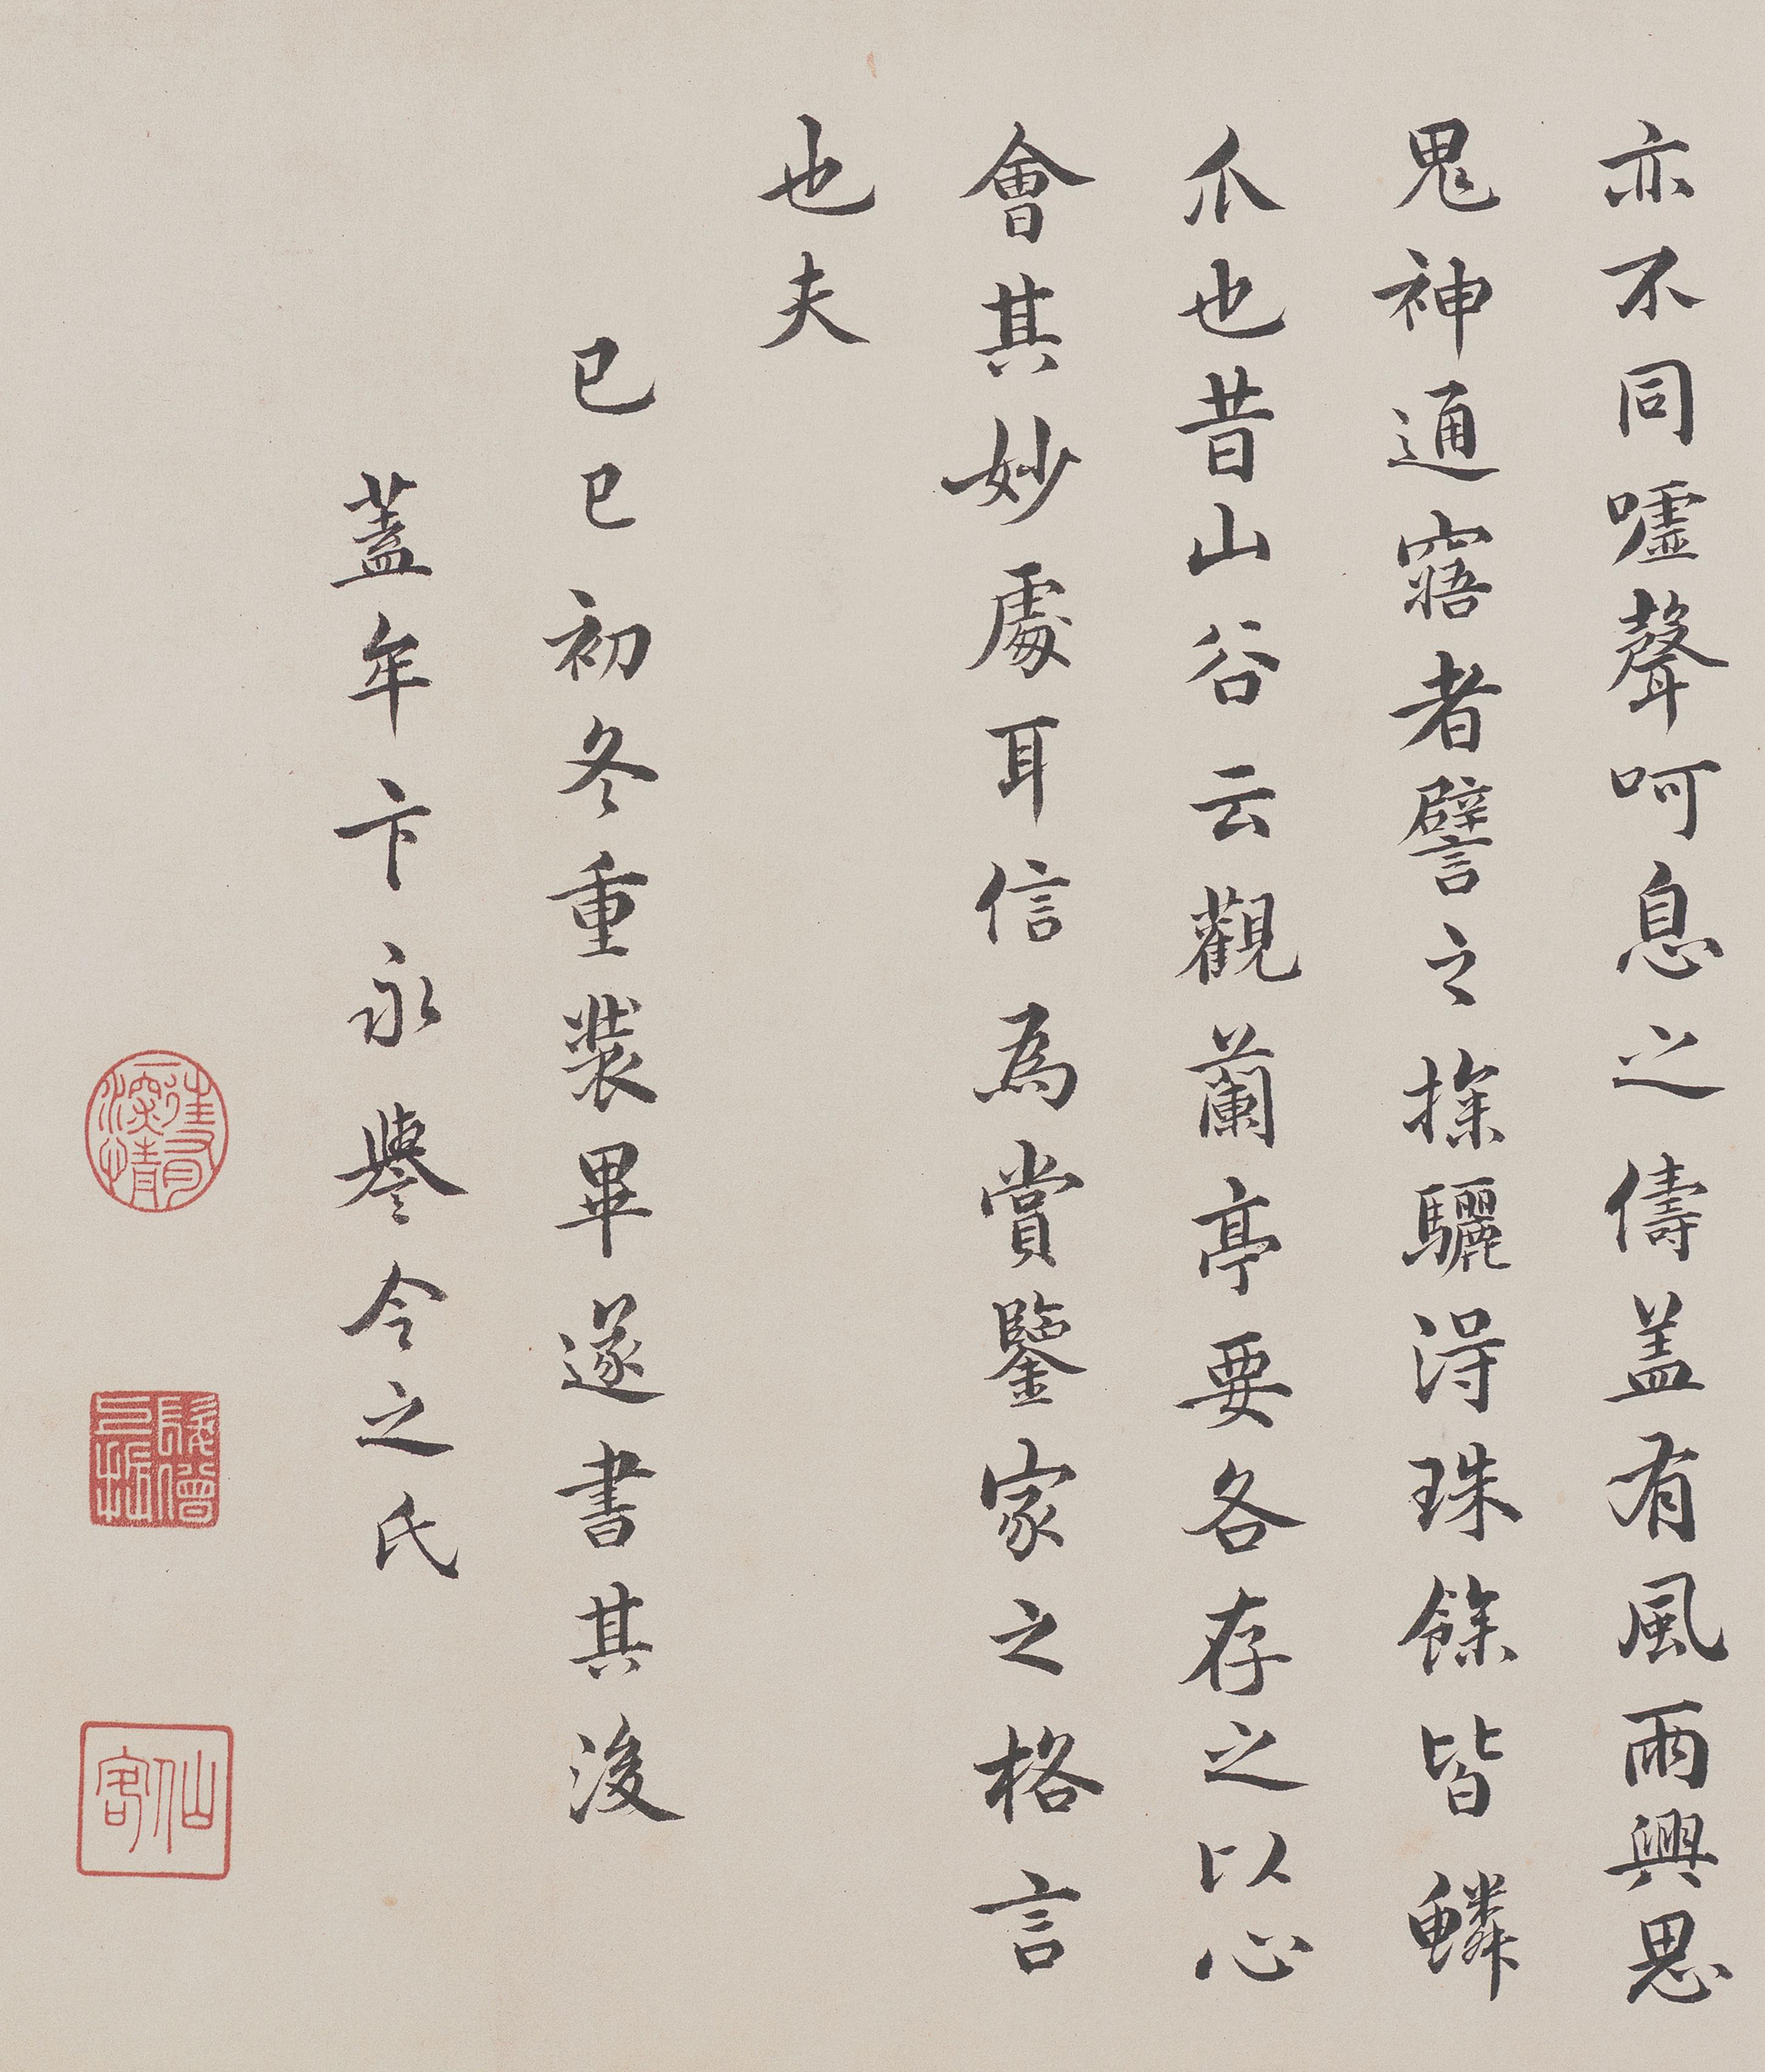 亦不同嘘聲呵息之儔盖有風雨興思
鬼神通寤者譬之探驪得珠餘皆鱗
爪也昔山谷云觀蘭亭要各存之以心
會其妙處耳信為賞鑒家之格言
也夫
己巳初冬重裝畢遂書其後
蓋牟卞永譽令之氏
一往有深情
仙客